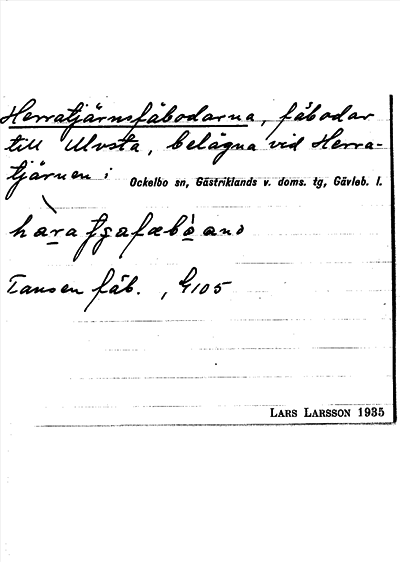 Herratjärnsfäbodarna, fäbodar
till Ulvsta, belägna vid Herra-
tjärnen i Ockelbo sn, Gästriklands v. doms. tg, Gävleb. l.
Tansen fäb. , G105
LARS LARSSON 1935